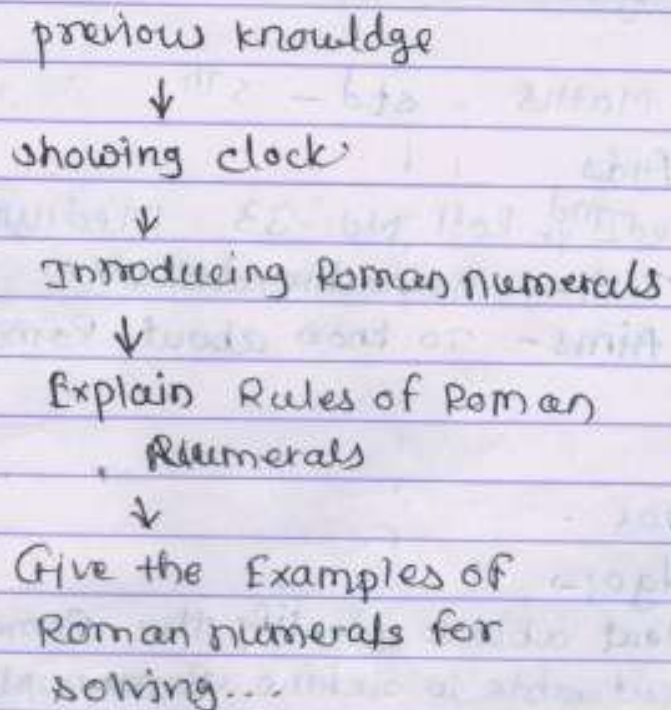 previow knowldge
↓
showing clock
↓
Introducing Roman numerals
↓
Explain Rules of Roman
Numerals
↓
Give the Examples of
Roman numerals for
solving....